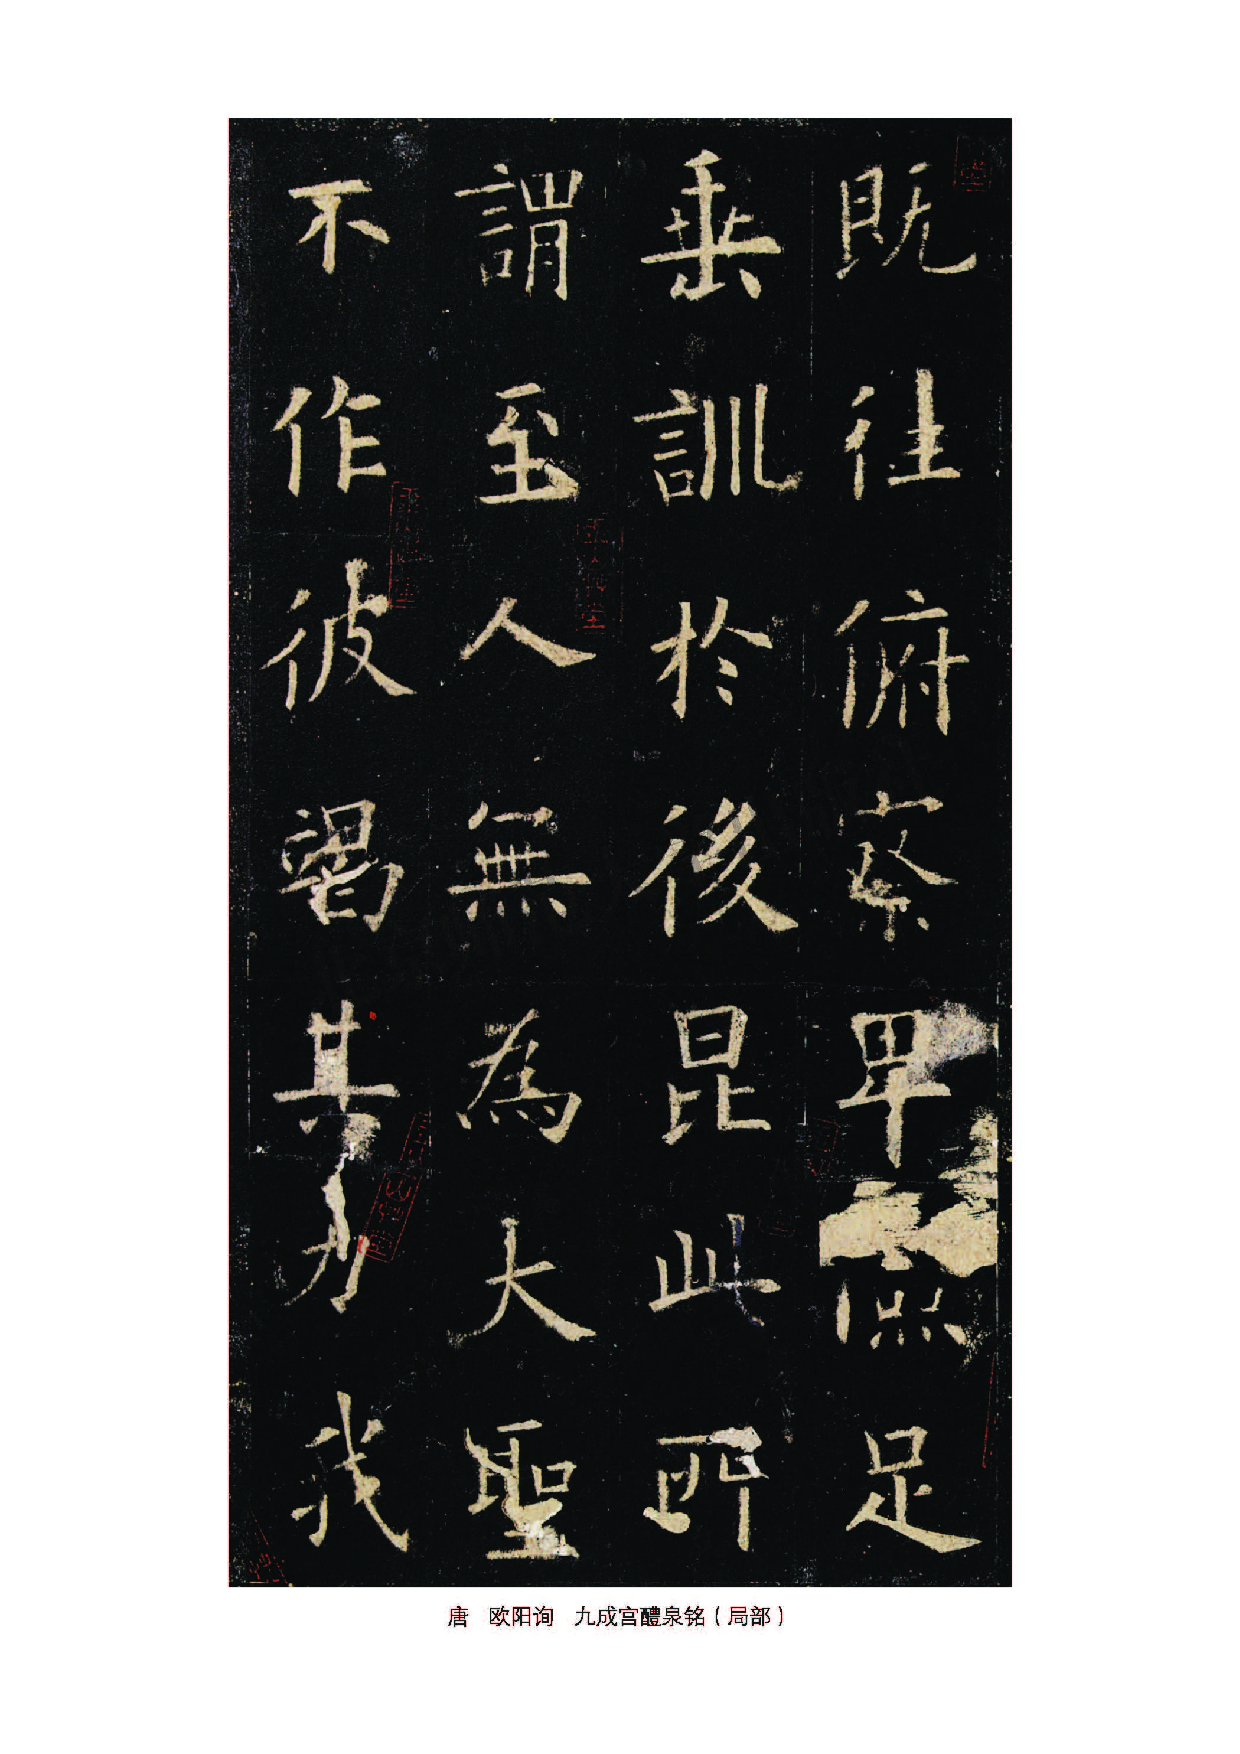 既往俯察卑儉足
垂訓於後昆此所
謂至人無為大聖
不作彼竭其力我
唐 欧阳询 九成宫醴泉铭（局部）